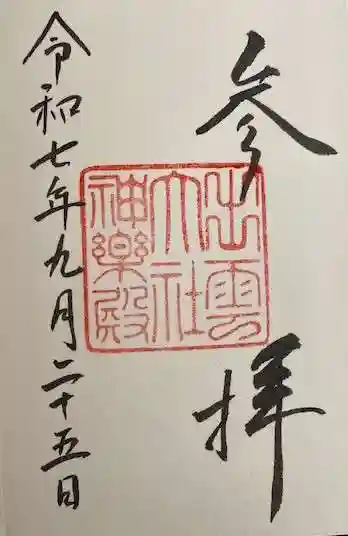 参拝
出雲
大社
神樂殿
令和七年九月二十五日